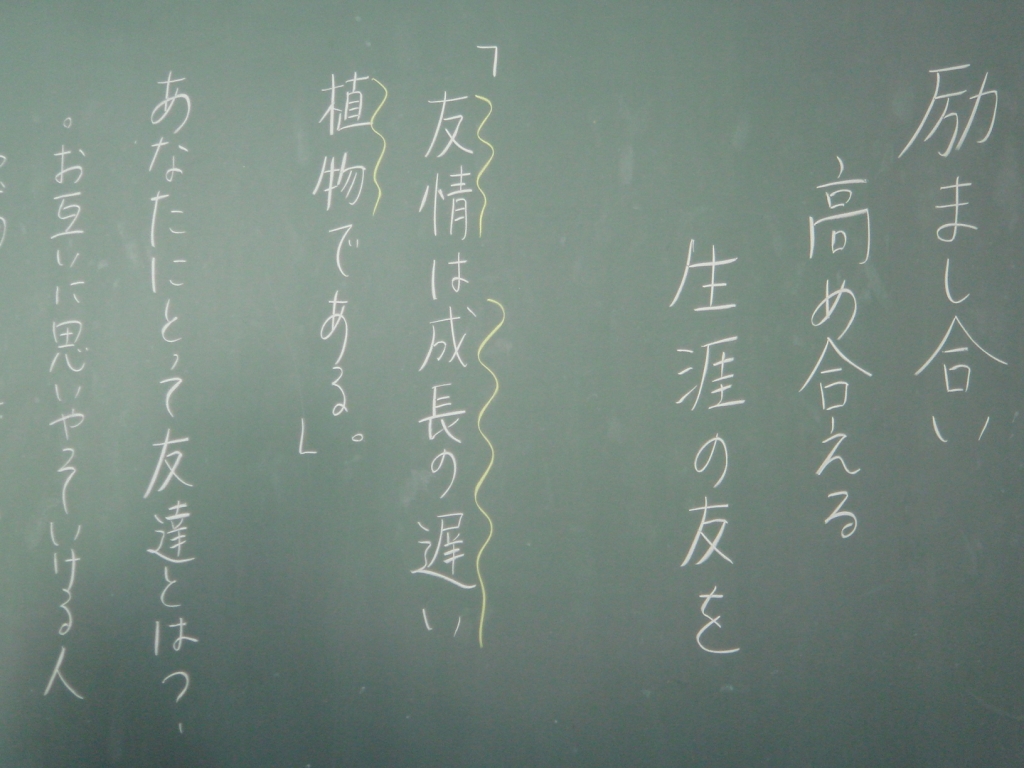 励まし合い
高め合える
生涯の友を
「友情は成長の遅い
植物である。」
あなたにとって友達とは?
・お互いに思いやっていける人